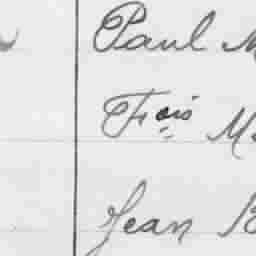 Paul M
Fois M
Jean B